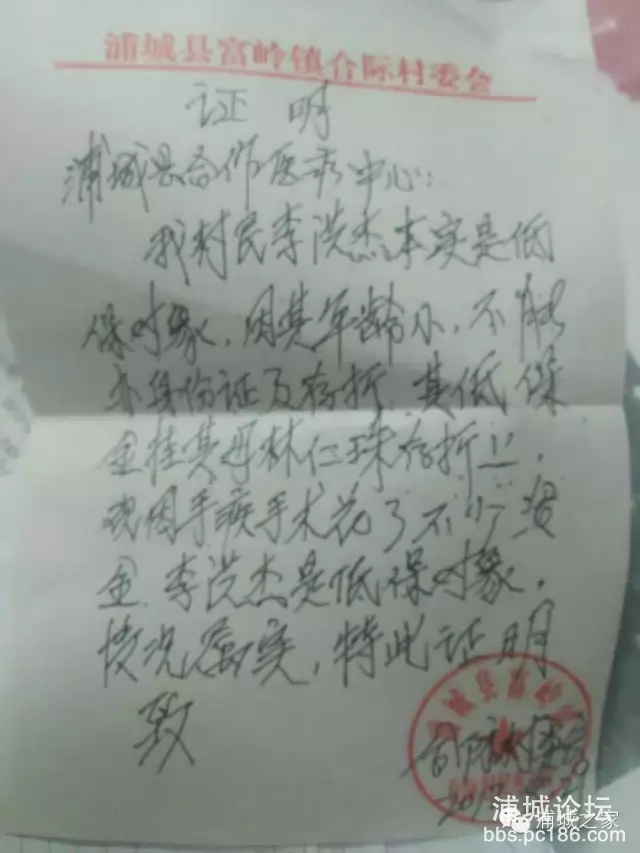 浦城县富岭镇合际村委会
证明
浦城县合作医疗中心:
我村民李洪杰本实是低
保对象,因其年龄小,不能
办身份证及存折,其低保
金挂其母林仁珠存折上,
现因手疾手术花了不少资
金,李洪杰是低保对象,
情况属实,特此证明
致
浦城县富岭
合际村委会
浦城论坛
浦城之家
bbs.pc186.com